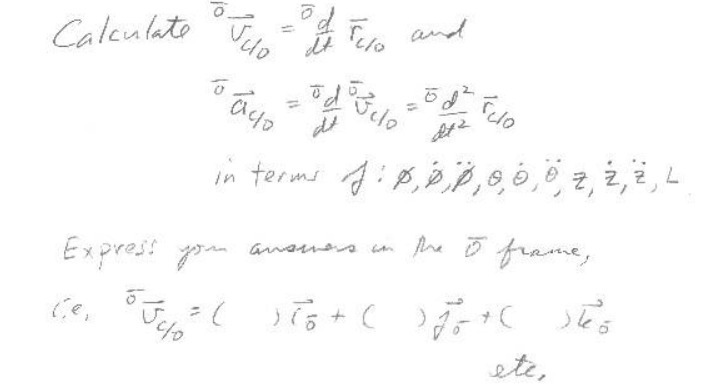 Calculate ᴼ̄v⃗_{C/O} = ᴼ̄d/dt r̄_{C/O} and
ᴼ̄a⃗_{C/O} = ᴼ̄d/dt ᴼ̄v⃗_{C/O} = ᴼ̄d²/dt² r̄_{C/O}
in terms of : ø, ø̇, ø̈, θ, θ̇, θ̈, z, ż, z̈, L
Express your answers in the Ō frame,
i.e, ᴼ̄v⃗_{C/O} = (   ) i⃗_ō + (   ) j⃗_ō + (   ) k⃗_ō
etc.